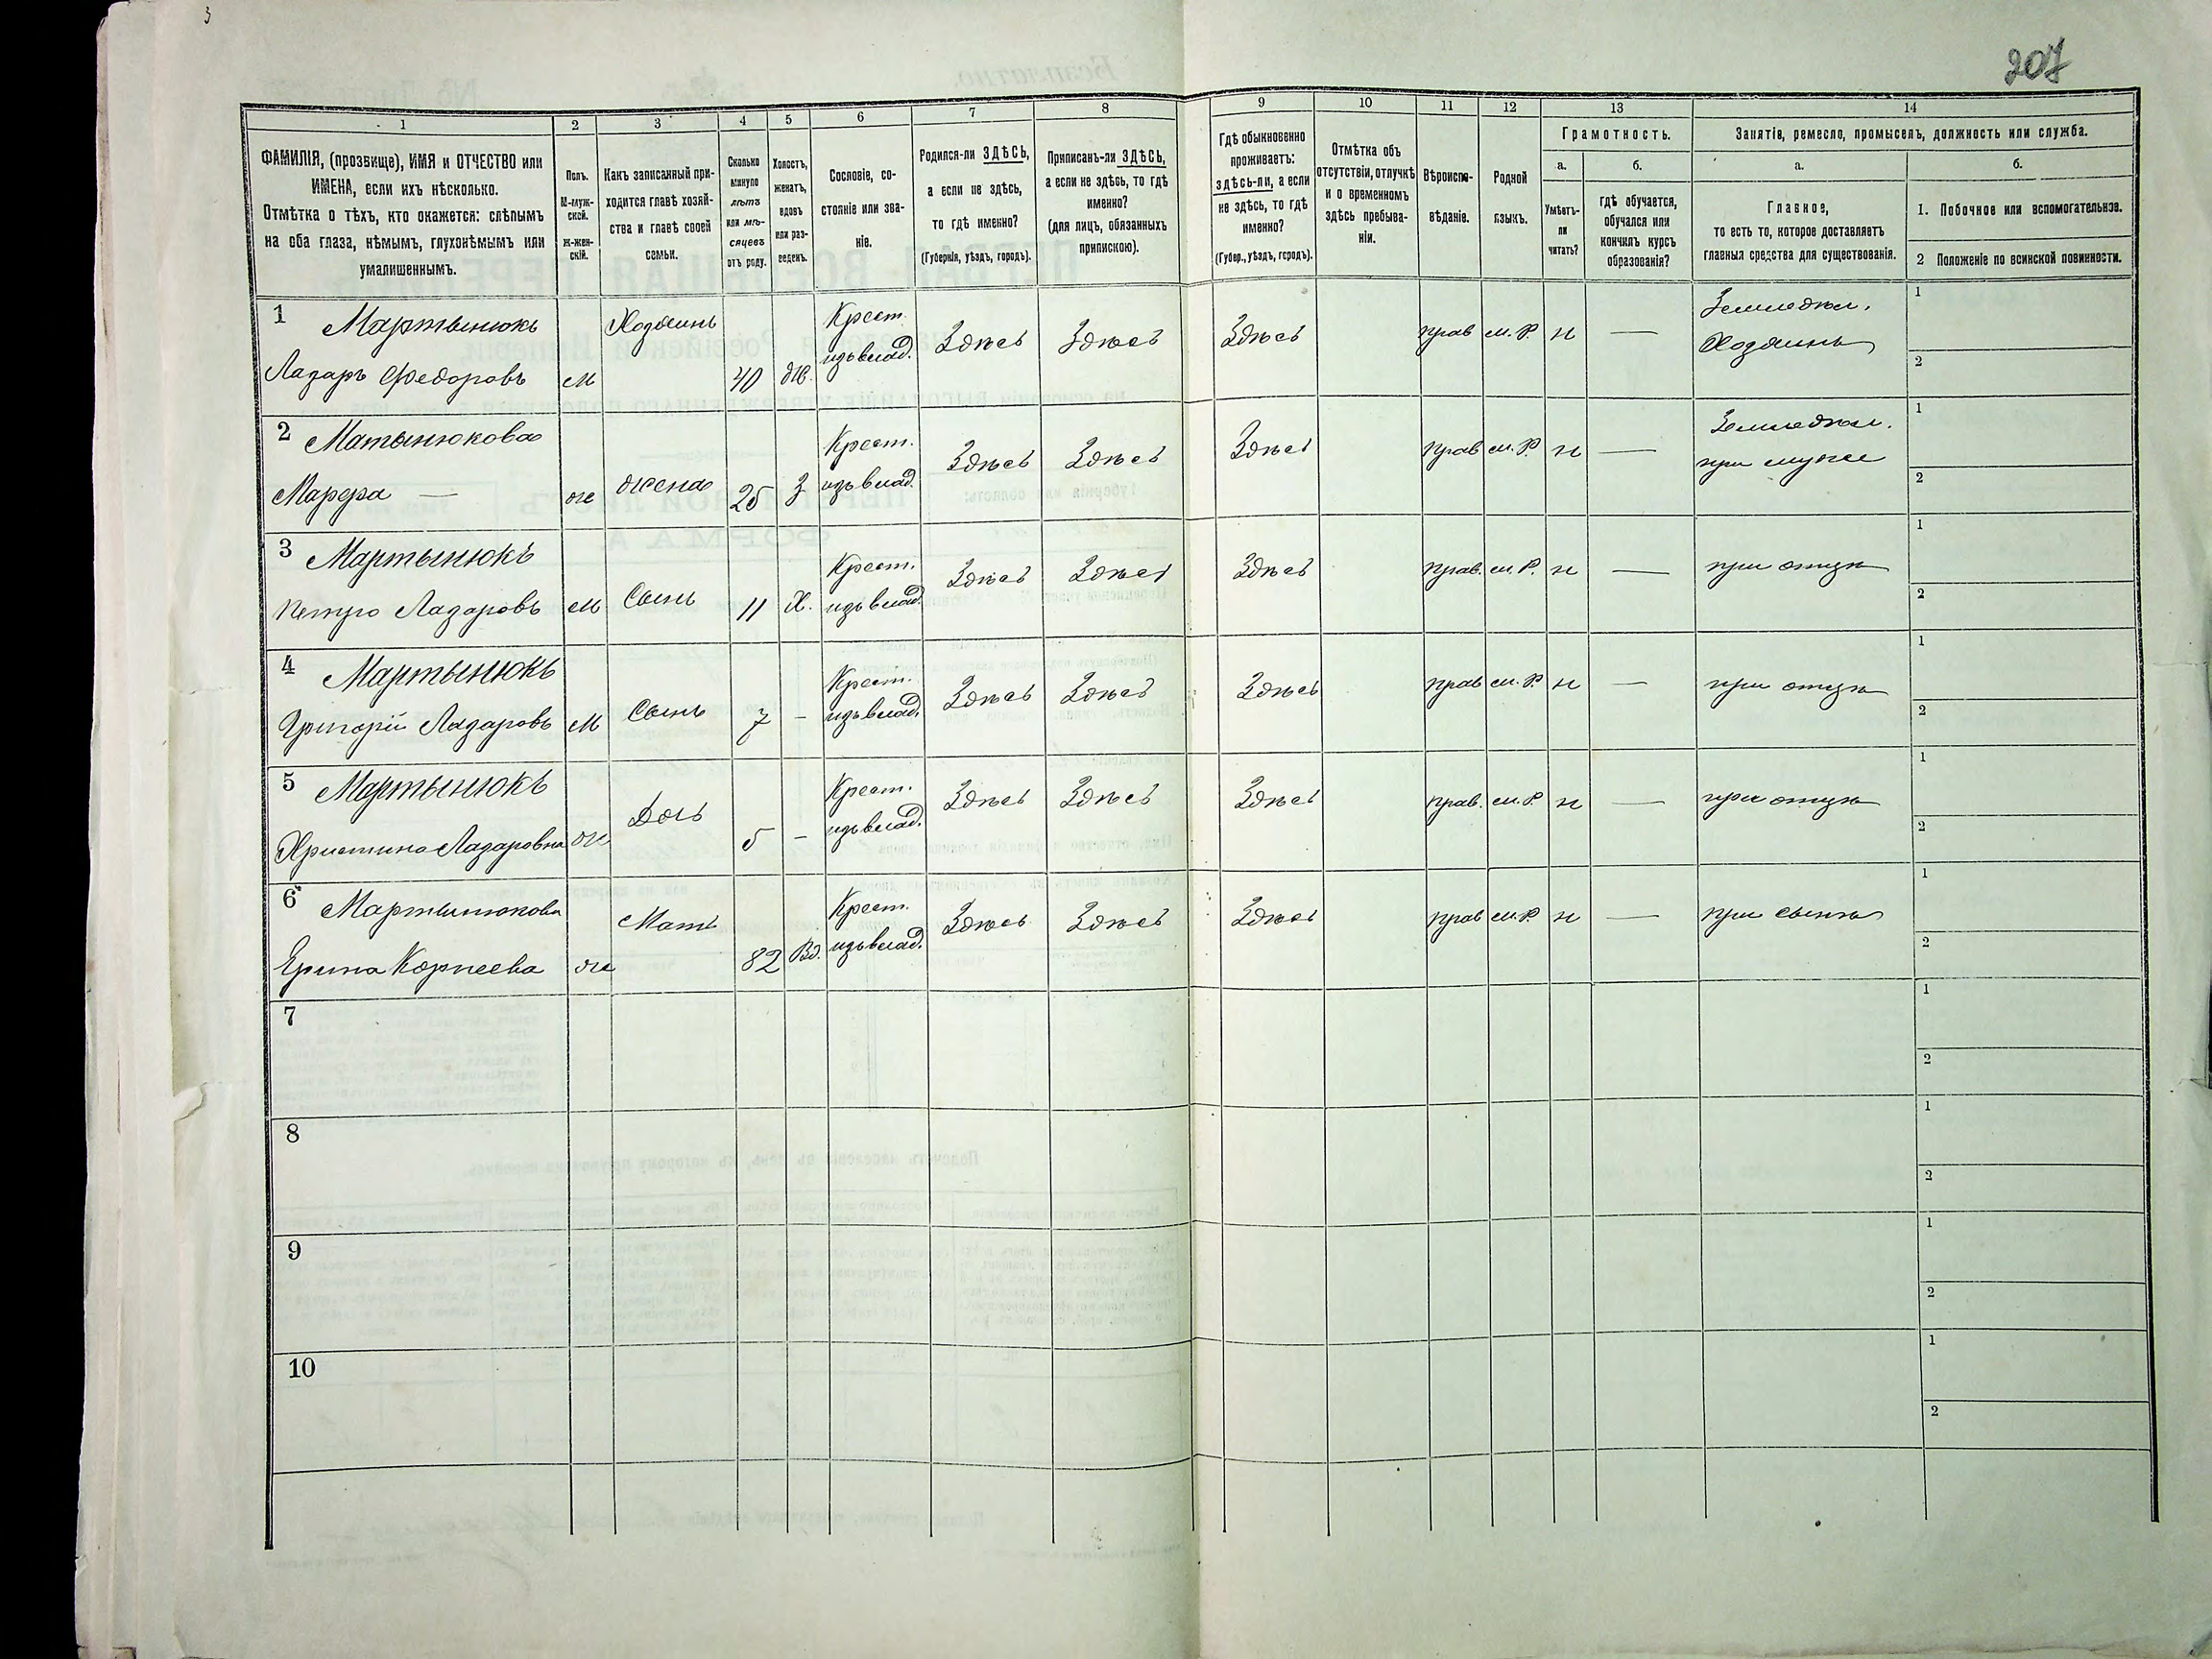 3
207
1
2
3
4
5
6
7
8
9
10
11
12
13
14
ФАМИЛІЯ, (прозвище), ИМЯ и ОТЧЕСТВО или
ИМЕНА, если ихъ нѣсколько.
Отмѣтка о тѣхъ, кто окажется: слѣпымъ
на оба глаза, нѣмымъ, глухонѣмымъ или
умалишеннымъ.
Полъ.
М-муж-
ской.
Ж-жен-
скій.
Какъ записанный при-
ходится главѣ хозяй-
ства и главѣ своей
семьи.
Сколько
минуло
лѣтъ
или мѣ-
сяцевъ
отъ роду.
Холостъ,
женатъ,
вдовъ
или раз-
веденъ.
Сословіе, со-
стояніе или зва-
ніе.
Родился-ли ЗДѢСЬ,
а если не здѣсь,
то гдѣ именно?
(Губернія, уѣздъ, городъ).
Приписанъ-ли ЗДѢСЬ,
а если не здѣсь, то гдѣ
именно?
(для лицъ, обязанныхъ
припискою).
Гдѣ обыкновенно
проживаетъ:
здѣсь-ли, а если
не здѣсь, то гдѣ
именно?
(Губер., уѣздъ, городъ).
Отмѣтка объ
отсутствіи, отлучкѣ
и о временномъ
здѣсь пребыва-
ніи.
Вѣроиспо-
вѣданіе.
Родной
языкъ.
Грамотность.
а.
Умѣетъ-
ли
читать?
б.
гдѣ обучается,
обучался или
кончилъ курсъ
образованія?
Занятіе, ремесло, промыселъ, должность или служба.
а.
Главное,
то есть то, которое доставляетъ
главныя средства для существованія.
б.
1. Побочное или вспомогательное.
2 Положеніе по воинской повинности.
1 Мартынюкъ Хозяинъ Крест. Здѣсь Здѣсь Здѣсь прав м. Р. н — Земледѣл. 1
Лазаръ Федоровъ м 40 ж. изъ влад. Хозяинъ 2
2 Матынюкова жена Крест. Здѣсь Здѣсь Здѣсь прав м. Р. н — Земледѣл. 1
Марфа — ж 25 З изъ влад. при мужѣ 2
3 Мартынюкъ Сынъ Крест. Здѣсь Здѣсь Здѣсь прав. м. Р. н — при отцѣ 1
Петро Лазаровъ м 11 Х. изъ влад. 2
4 Мартынюкъ Сынъ Крест. Здѣсь Здѣсь Здѣсь прав м. Р. н — при отцѣ 1
Григорій Лазаровъ м 7 – изъ влад. 2
5 Мартынюкъ Дочь Крест. Здѣсь Здѣсь Здѣсь прав. м. Р. н — при отцѣ 1
Христина Лазаровна ж 5 – изъ влад. 2
6 Мартынюкова Мать Крест. Здѣсь Здѣсь Здѣсь прав м. Р. н — при сынѣ 1
Ерина Корнеева ж 82 Вд. изъ влад. 2
7 1
2
8 1
2
9 1
2
10 1
2